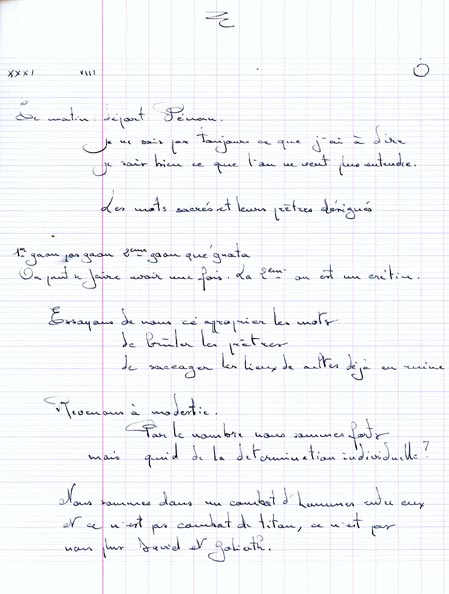 XXXI VIII
Ce matin départ Pénan.
Je ne sais pas toujours ce que j'ai à dire
je sais bien ce que l'on ne veut plus entendre.
Les mots sacrés et leurs prêtres désignés
1er gaou pas gaou 2ème gaou que gnata
On peut se faire avoir une fois. La 2ème on est un crétin.
Essayons de nous ré approprier les mots
de brûler les prêtres
de saccager les lieux de cultes déjà en ruine
Revenons à modestie.
Par le nombre nous sommes forts
mais quid de la determination individuelle ?
Nous sommes dans un combat d'hommes entre eux
et ce n'est pas combat de titan, ce n'est pas
non plus David et Goliath.